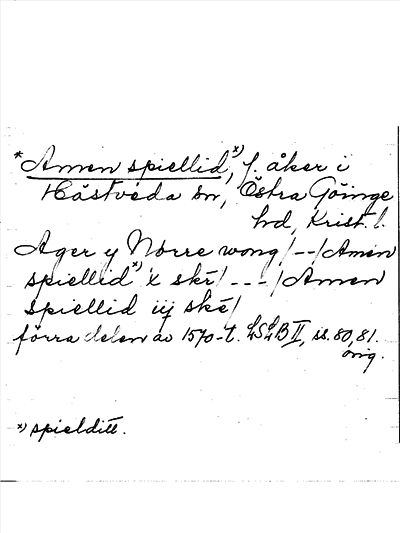 * Amen spiellid,ˣ⁾ f. åker i
Hästveda sn, Östra Göinge
hd, Krist. l.
Ager y Nörre wong/--/Amen
spiellidˣ⁾ x skē/---/Amen
spiellid iij skē/
förra delen av 1570-t. LSLB II, ss. 80, 81.
orig.
x) spielditt.